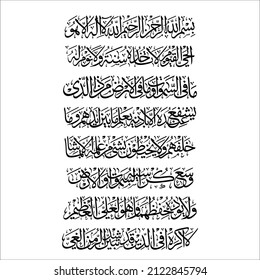 بسم الله الرحمن الرحيم الله لا إله إلا هو
الحي القيوم لا تأخذه سنة ولا نوم له
ما في السموات وما في الأرض من ذا الذي
يشفع عنده إلا بإذنه يعلم ما بين أيديهم وما
خلفهم ولا يحيطون بشيء من علمه إلا بما شاء
وسع كرسيه السموات والأرض
ولا يؤده حفظهما وهو العلي العظيم
لا إكراه في الدين قد تبين الرشد من الغي
shutterstock.com · 2122845794